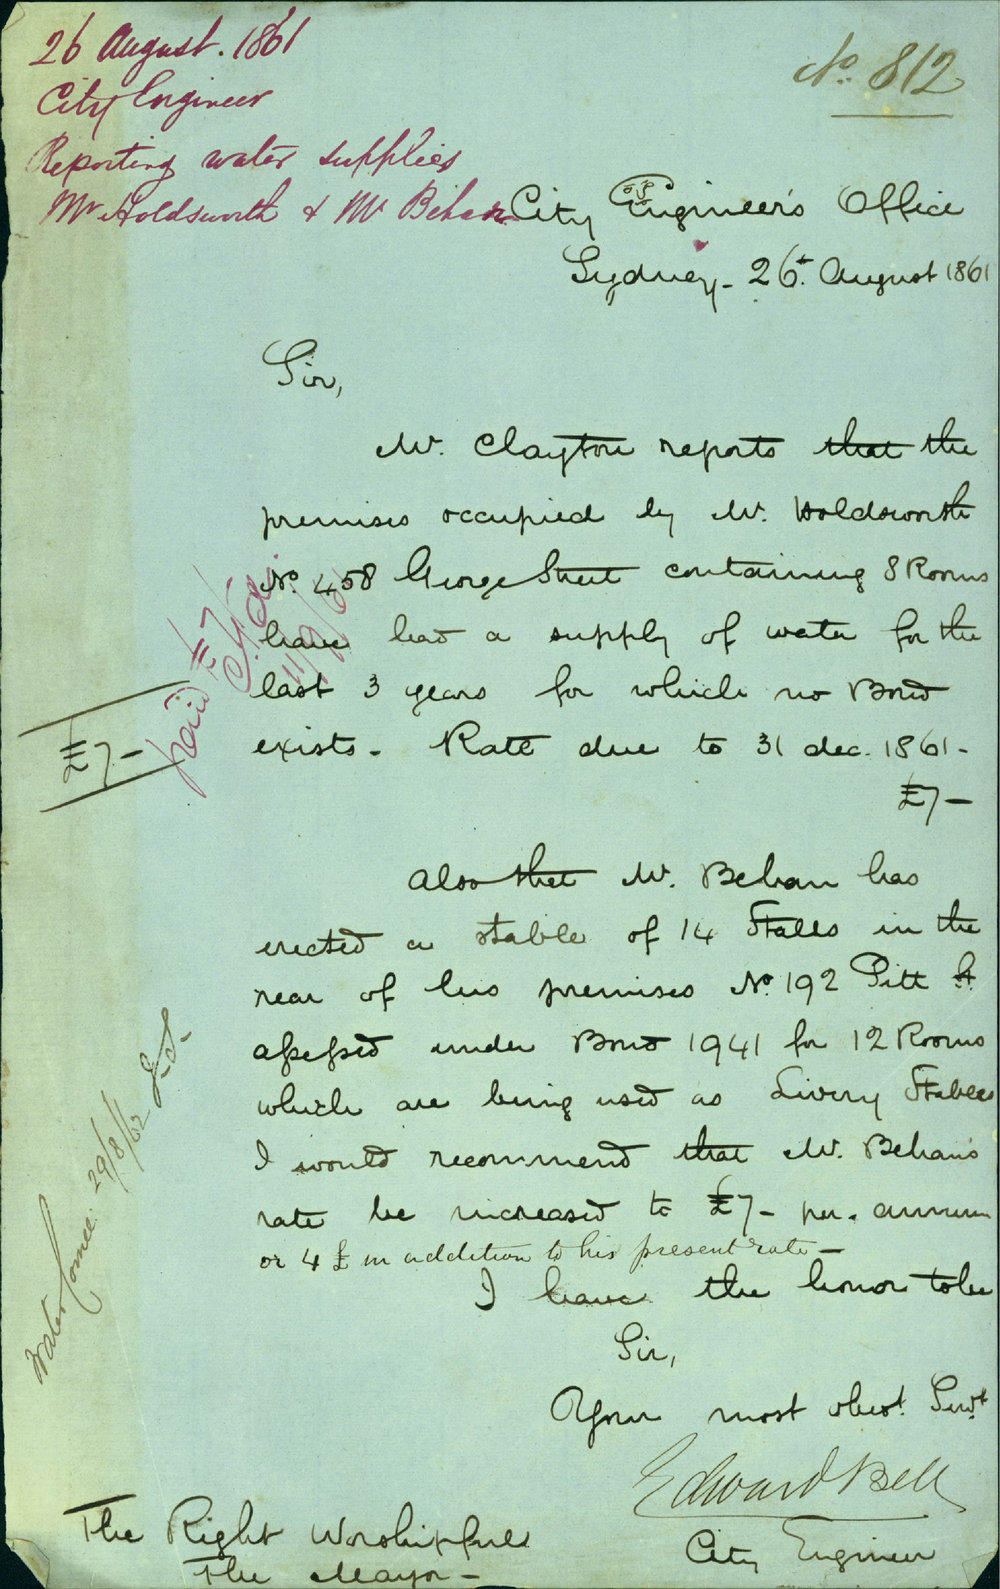 26 August. 1861
City Engineer
Reporting water supplies
Mr Holdsworth & Mr Behan
No. 812
City Engineer's Office
Sydney - 26t. August 1861
Sir,
Mr. Clayton reports that the
premises occupied by Mr. Holdsworth
No. 458 George Street containing 8 Rooms
have had a supply of water for the
last 3 years for which no Bond
exists - Rate due to 31 dec. 1861 -
£7 -
£7 -
paid £7/
11/9/61
Also that Mr. Behan has
erected a stable of 14 Stalls in the
rear of his premises No. 192 Pitt St.
assessed under Bond 1941 for 12 Rooms
which are being used as Livery Stables
I would recommend that Mr. Behan's
rate be increased to £7 - per. annum
or 4 £ in addition to his present rate -
I have the honor to be
Sir,
Your most obedt. Servt
Edward Bell
City Engineer
The Right Worshipfull
The Mayor -
Water Comee. 29/8/62